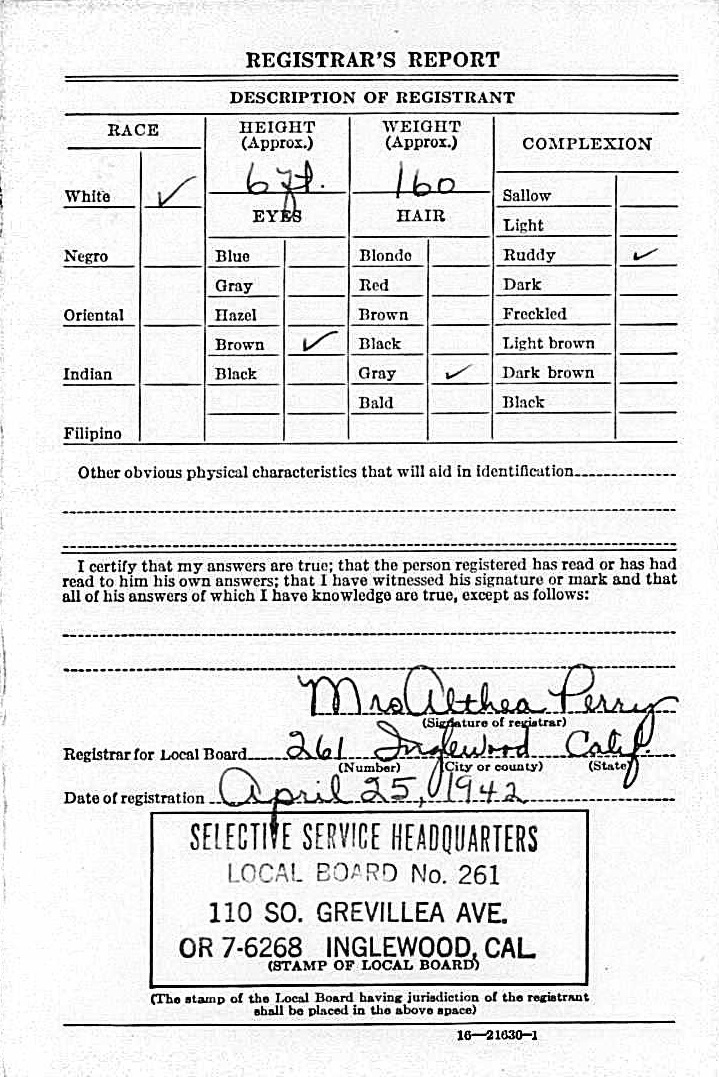 REGISTRAR'S REPORT
DESCRIPTION OF REGISTRANT
RACE
HEIGHT
(Approx.)
WEIGHT
(Approx.)
COMPLEXION
White ✓
6 ft.
160
Sallow
EYES
HAIR
Light
Negro
Blue
Blonde
Ruddy ✓
Gray
Red
Dark
Oriental
Hazel
Brown
Freckled
Brown ✓
Black
Light brown
Indian
Black
Gray ✓
Dark brown
Bald
Black
Filipino
Other obvious physical characteristics that will aid in identification
I certify that my answers are true; that the person registered has read or has had
read to him his own answers; that I have witnessed his signature or mark and that
all of his answers of which I have knowledge are true, except as follows:
Mrs Althea Perry
(Signature of registrar)
Registrar for Local Board 261 Inglewood Calif.
(Number) (City or county) (State)
Date of registration April 25, 1942
SELECTIVE SERVICE HEADQUARTERS
LOCAL BOARD No. 261
110 SO. GREVILLEA AVE.
OR 7-6268 INGLEWOOD, CAL
(STAMP OF LOCAL BOARD)
(The stamp of the Local Board having jurisdiction of the registrant
shall be placed in the above space)
16—21630-1